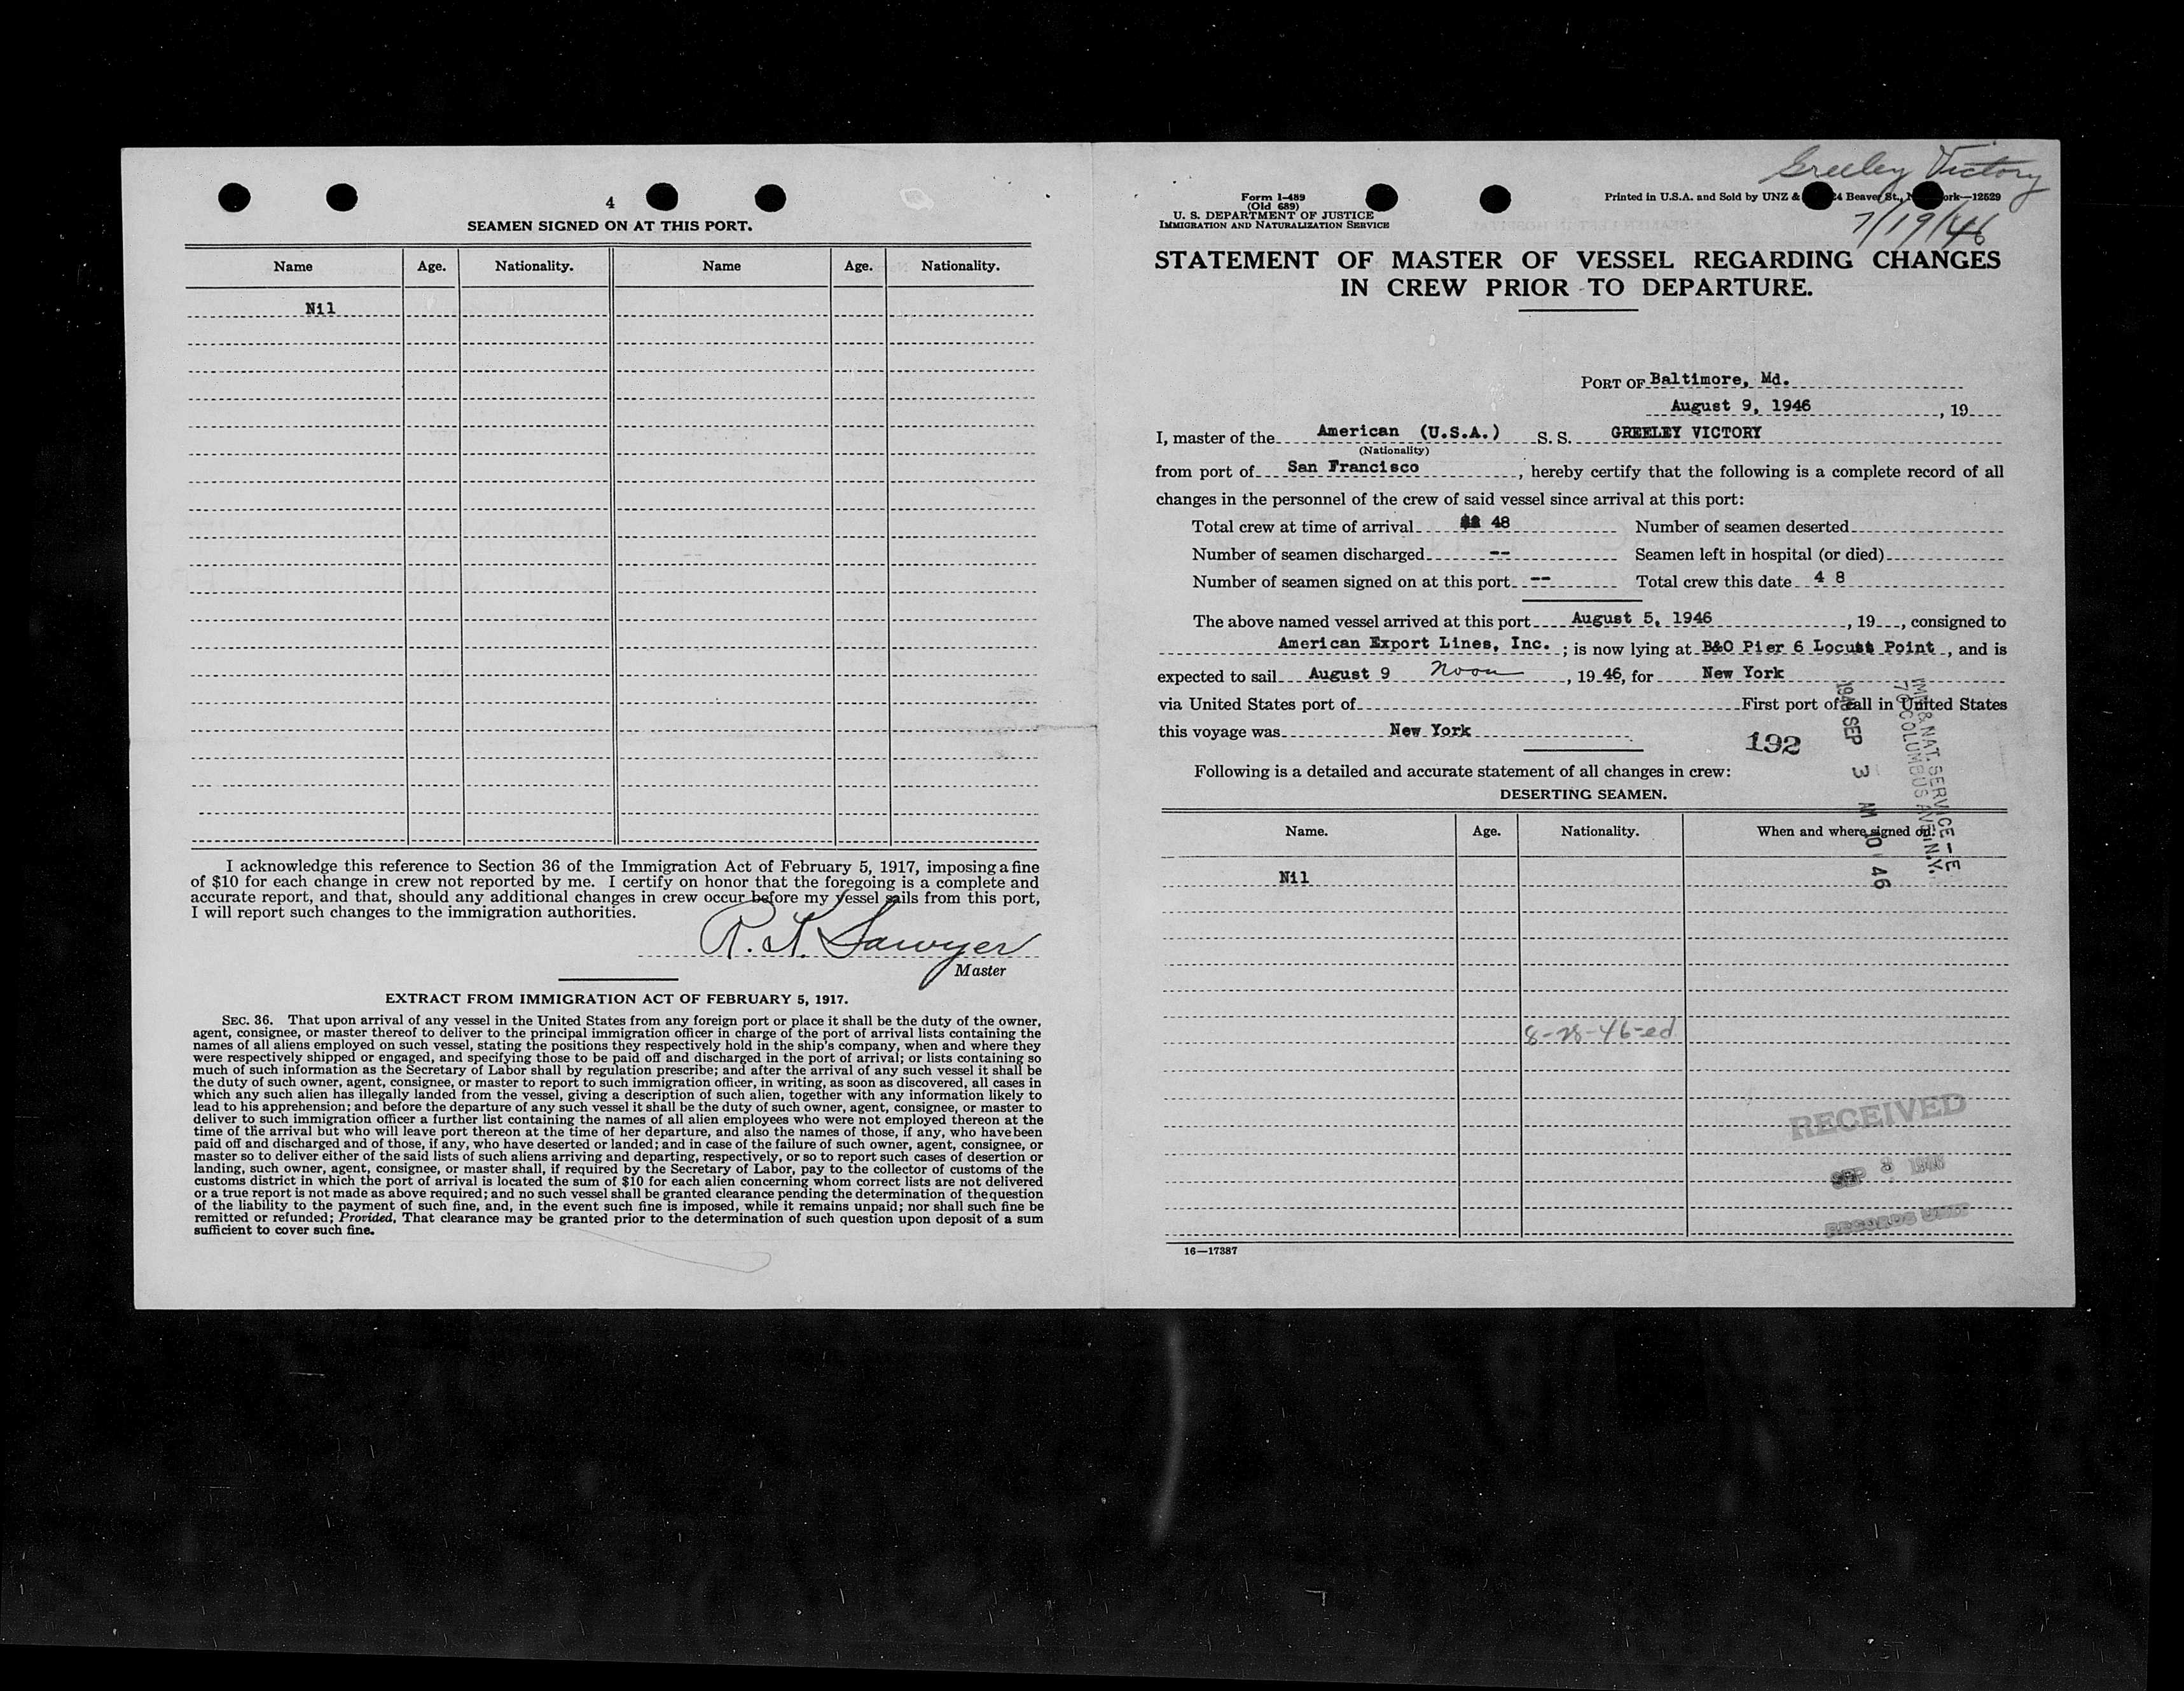 4
SEAMEN SIGNED ON AT THIS PORT.
Name Age. Nationality. Name Age. Nationality.
Nil
I acknowledge this reference to Section 36 of the Immigration Act of February 5, 1917, imposing a fine
of $10 for each change in crew not reported by me. I certify on honor that the foregoing is a complete and
accurate report, and that, should any additional changes in crew occur before my vessel sails from this port,
I will report such changes to the immigration authorities.
R. K. Sawyer
Master
EXTRACT FROM IMMIGRATION ACT OF FEBRUARY 5, 1917.
SEC. 36. That upon arrival of any vessel in the United States from any foreign port or place it shall be the duty of the owner,
agent, consignee, or master thereof to deliver to the principal immigration officer in charge of the port of arrival lists containing the
names of all aliens employed on such vessel, stating the positions they respectively hold in the ship's company, when and where they
were respectively shipped or engaged, and specifying those to be paid off and discharged in the port of arrival; or lists containing so
much of such information as the Secretary of Labor shall by regulation prescribe; and after the arrival of any such vessel it shall be
the duty of such owner, agent, consignee, or master to report to such immigration officer, in writing, as soon as discovered, all cases in
which any such alien has illegally landed from the vessel, giving a description of such alien, together with any information likely to
lead to his apprehension; and before the departure of any such vessel it shall be the duty of such owner, agent, consignee, or master to
deliver to such immigration officer a further list containing the names of all alien employees who were not employed thereon at the
time of the arrival but who will leave port thereon at the time of her departure, and also the names of those, if any, who have been
paid off and discharged and of those, if any, who have deserted or landed; and in case of the failure of such owner, agent, consignee, or
master so to deliver either of the said lists of such aliens arriving and departing, respectively, or so to report such cases of desertion or
landing, such owner, agent, consignee, or master shall, if required by the Secretary of Labor, pay to the collector of customs of the
customs district in which the port of arrival is located the sum of $10 for each alien concerning whom correct lists are not delivered
or a true report is not made as above required; and no such vessel shall be granted clearance pending the determination of the question
of the liability to the payment of such fine, and, in the event such fine is imposed, while it remains unpaid; nor shall such fine be
remitted or refunded; Provided, That clearance may be granted prior to the determination of such question upon deposit of a sum
sufficient to cover such fine.
Greeley Victory
7/19/46
Form I-489
(Old 689)
U. S. DEPARTMENT OF JUSTICE
IMMIGRATION AND NATURALIZATION SERVICE
Printed in U.S.A. and Sold by UNZ & 24 Beaver St., N ork—12529
STATEMENT OF MASTER OF VESSEL REGARDING CHANGES
IN CREW PRIOR TO DEPARTURE.
PORT OF Baltimore, Md.
August 9, 1946, 19
I, master of the American (U.S.A.) S. S. GREELEY VICTORY
(Nationality)
from port of San Francisco, hereby certify that the following is a complete record of all
changes in the personnel of the crew of said vessel since arrival at this port:
Total crew at time of arrival 48 Number of seamen deserted
Number of seamen discharged -- Seamen left in hospital (or died)
Number of seamen signed on at this port -- Total crew this date 4 8
The above named vessel arrived at this port August 5, 1946, 19, consigned to
American Export Lines, Inc. ; is now lying at B&O Pier 6 Locust Point, and is
expected to sail August 9 Noon, 19 46, for New York
via United States port of First port of call in United States
this voyage was New York
192
IMM & NAT. SERVICE - E
70 COLUMBUS AVE. N.Y.
1946 SEP 3 AM 10 46
Following is a detailed and accurate statement of all changes in crew:
DESERTING SEAMEN.
Name. Age. Nationality. When and where signed on.
Nil
8-28-46-ed
RECEIVED
SEP 3 1946
RECORDS UNIT
16—17387